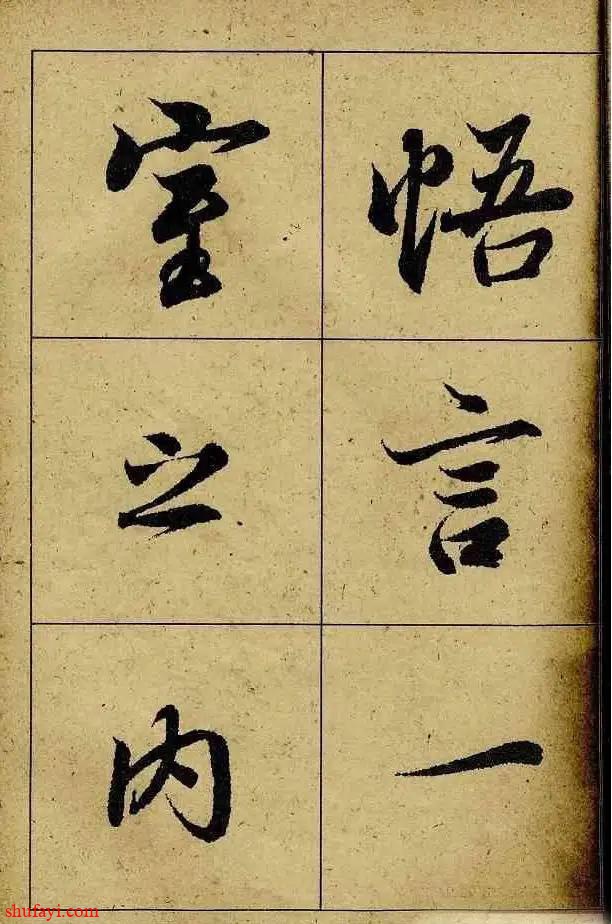 悟言一
室之内
shufayi.com